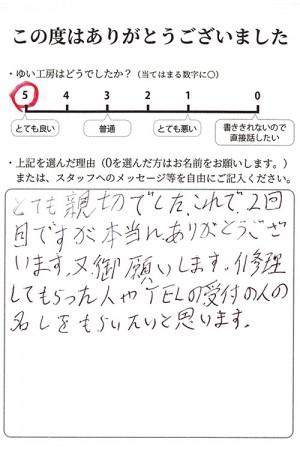 この度はありがとうございました
・ゆい工房はどうでしたか？（当てはまる数字に○）
5 4 3 2 1 0
とても良い 普通 とても悪い 書ききれないので直接話したい
・上記を選んだ理由（0を選んだ方はお名前をお願いします。）
または、スタッフへのメッセージ等を自由にご記入ください。
とても親切でした。これで、2回
目ですが本当に、ありがとうござ
います。又御願いします。修理
してもらった人やTELの受付の人の
名しをもらいたいと思います。